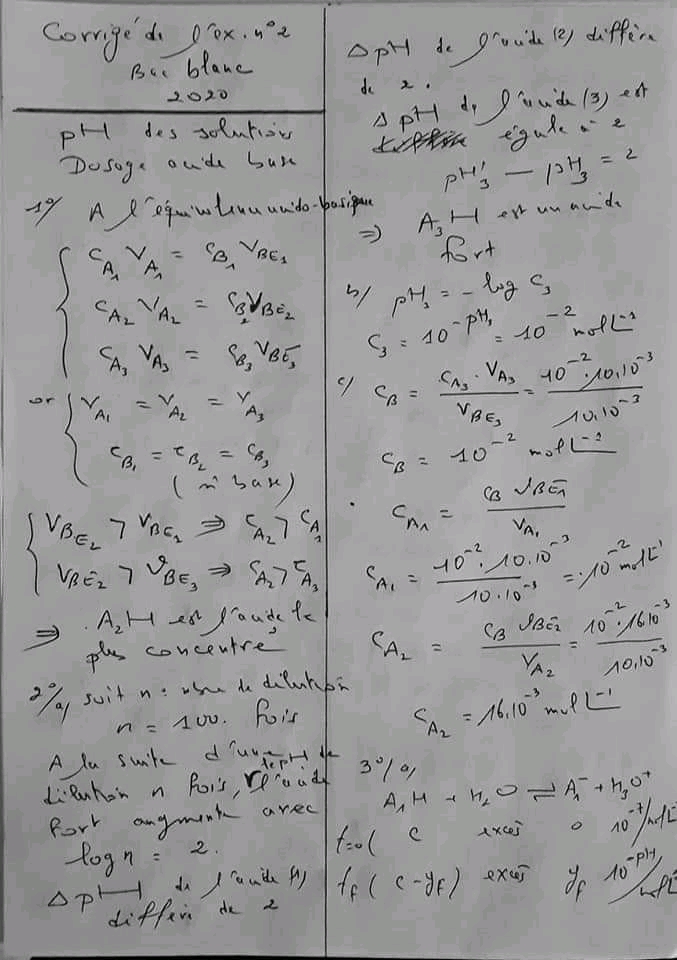 Corrigé de l'ex. n°2
Bac blanc
2020
pH des solutions
Dosage acide base
1°/ A l'équivalence acido-basique
C_A1 V_A1 = C_B1 V_BE1
C_A2 V_A2 = C_B2 V_BE2
C_A3 V_A3 = C_B3 V_BE3
or V_A1 = V_A2 = V_A3
C_B1 = C_B2 = C_B3
(m̂ base)
V_BE2 > V_BE1 => C_A2 > C_A1
V_BE2 > V_BE3 => C_A2 > C_A3
=> A2H est l'acide le
plus concentré
2°/a/ soit n : nbre de dilution
n = 100. fois
A la suite d'une
dilution n fois, le pH de l'acide
fort augmente avec
log n = 2.
ΔpH de l'acide (1)
diffère de 2
ΔpH de l'acide (2) diffère
de 2.
ΔpH de l'acide (3) est
égale à 2
pH'3 – pH3 = 2
=> A3H est un acide
fort
b/ pH3 = - log C3
C3 = 10^-pH3 = 10^-2 mol L^-1
c/ C_B = C_A3 . V_A3 / V_BE3 = 10^-2 . 10.10^-3 / 10.10^-3
C_B = 10^-2 mol L^-1
. C_A1 = C_B V_BE1 / V_A1
C_A1 = 10^-2 . 10.10^-3 / 10.10^-3 = 10^-2 mol L^-1
C_A2 = C_B V_BE2 / V_A2 = 10^-2 . 16.10^-3 / 10.10^-3
C_A2 = 16.10^-3 mol L^-1
3°/a/
A1H + H2O ⇌ A1^- + H3O^+
t=0 ( C excès 0 10^-7 mol L^-1
tf ( C - yf ) excès yf 10^-pH mol L^-1